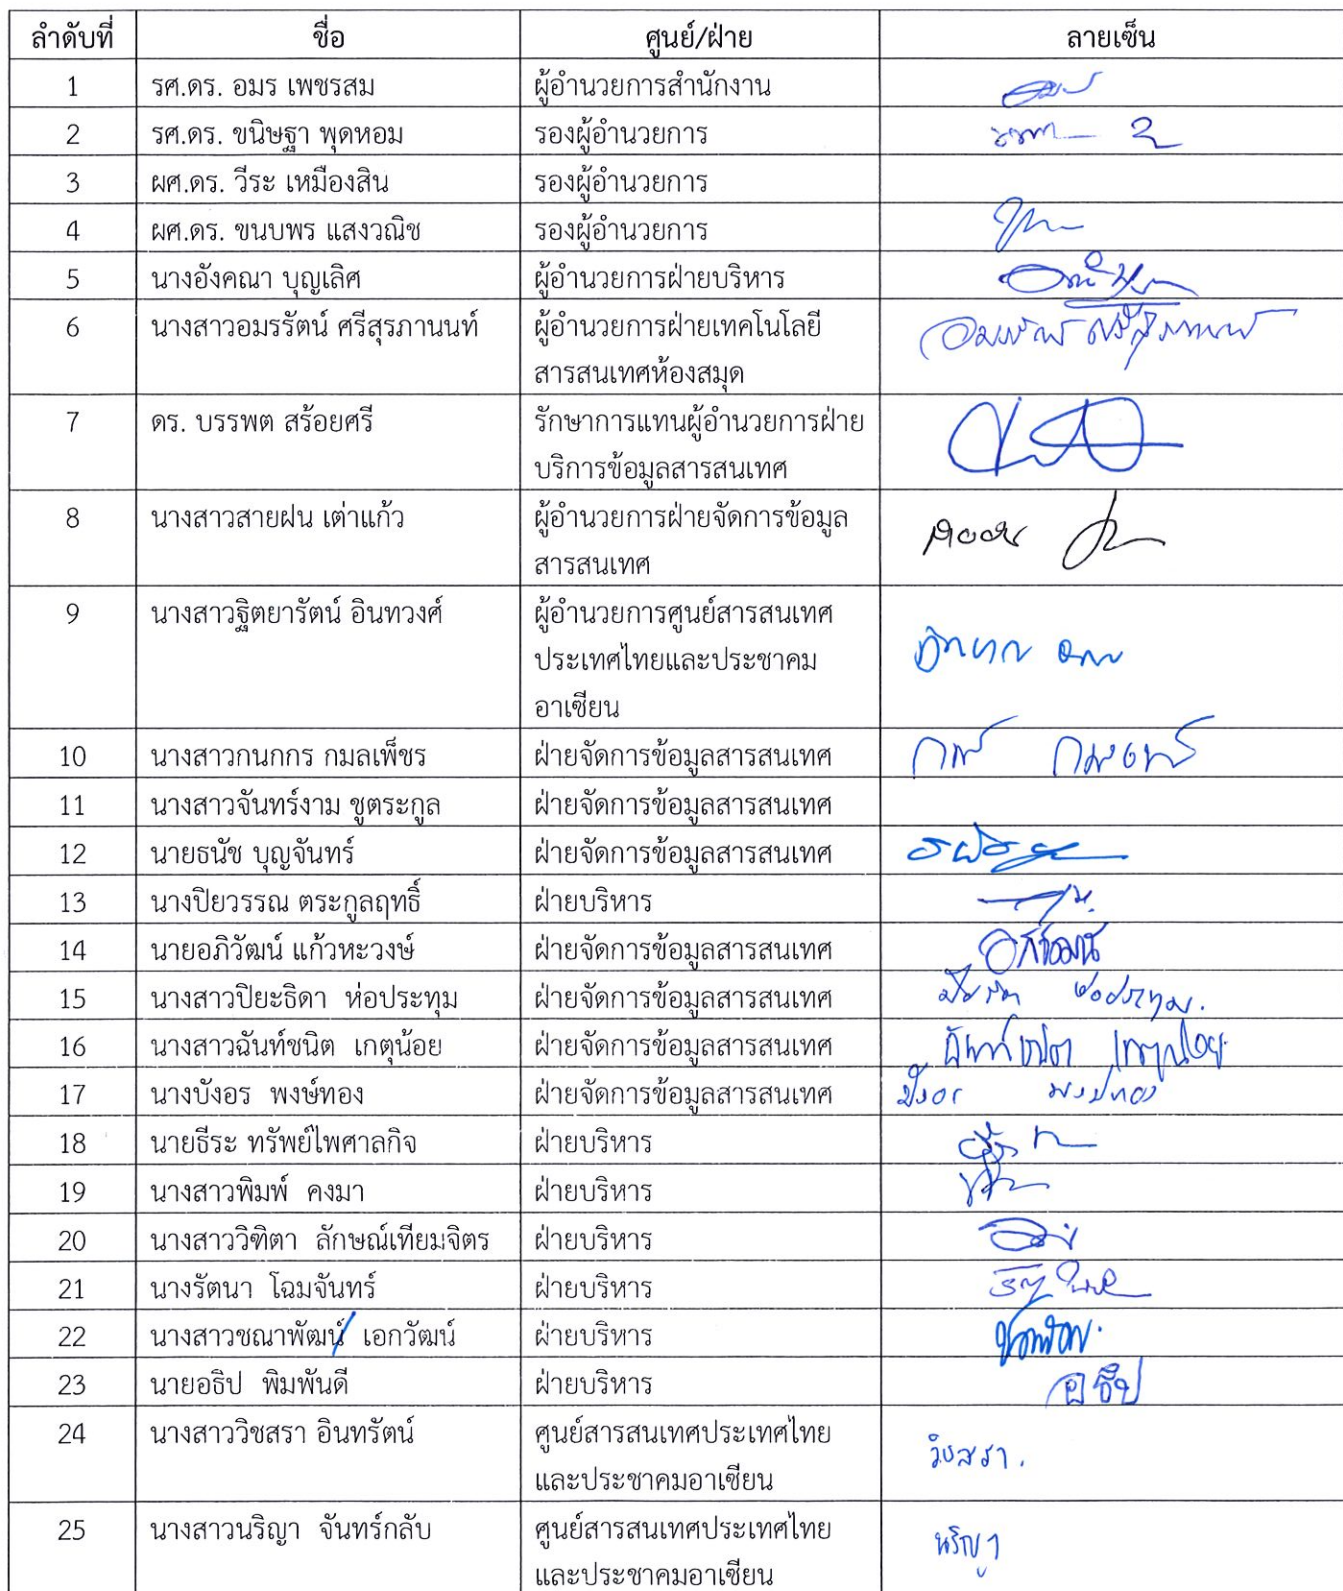 ลำดับที่ ชื่อ ศูนย์/ฝ่าย ลายเซ็น
1 รศ.ดร. อมร เพชรสม ผู้อำนวยการสำนักงาน
2 รศ.ดร. ขนิษฐา พุดหอม รองผู้อำนวยการ
3 ผศ.ดร. วีระ เหมืองสิน รองผู้อำนวยการ
4 ผศ.ดร. ขนบพร แสงวณิช รองผู้อำนวยการ
5 นางอังคณา บุญเลิศ ผู้อำนวยการฝ่ายบริหาร
6 นางสาวอมรรัตน์ ศรีสุรภานนท์ ผู้อำนวยการฝ่ายเทคโนโลยี
สารสนเทศห้องสมุด
7 ดร. บรรพต สร้อยศรี รักษาการแทนผู้อำนวยการฝ่าย
บริการข้อมูลสารสนเทศ
8 นางสาวสายฝน เต่าแก้ว ผู้อำนวยการฝ่ายจัดการข้อมูล
สารสนเทศ
9 นางสาวฐิตยารัตน์ อินทวงศ์ ผู้อำนวยการศูนย์สารสนเทศ
ประเทศไทยและประชาคม
อาเซียน
10 นางสาวกนกกร กมลเพ็ชร ฝ่ายจัดการข้อมูลสารสนเทศ
11 นางสาวจันทร์งาม ชูตระกูล ฝ่ายจัดการข้อมูลสารสนเทศ
12 นายธนัช บุญจันทร์ ฝ่ายจัดการข้อมูลสารสนเทศ
13 นางปิยวรรณ ตระกูลฤทธิ์ ฝ่ายบริหาร
14 นายอภิวัฒน์ แก้วหะวงษ์ ฝ่ายจัดการข้อมูลสารสนเทศ อภิวัฒน์
15 นางสาวปิยะธิดา ห่อประทุม ฝ่ายจัดการข้อมูลสารสนเทศ
16 นางสาวฉันท์ชนิต เกตุน้อย ฝ่ายจัดการข้อมูลสารสนเทศ ฉันท์ชนิต เกตุน้อย
17 นางบังอร พงษ์ทอง ฝ่ายจัดการข้อมูลสารสนเทศ บังอร พงษ์ทอง
18 นายธีระ ทรัพย์ไพศาลกิจ ฝ่ายบริหาร
19 นางสาวพิมพ์ คงมา ฝ่ายบริหาร
20 นางสาววิฑิตา ลักษณ์เทียมจิตร ฝ่ายบริหาร
21 นางรัตนา โฉมจันทร์ ฝ่ายบริหาร
22 นางสาวชณาพัฒน์ เอกวัฒน์ ฝ่ายบริหาร
23 นายอธิป พิมพันดี ฝ่ายบริหาร อธิป
24 นางสาววิชสรา อินทรัตน์ ศูนย์สารสนเทศประเทศไทย
และประชาคมอาเซียน วิชสรา.
25 นางสาวนริญา จันทร์กลับ ศูนย์สารสนเทศประเทศไทย
และประชาคมอาเซียน นริญา